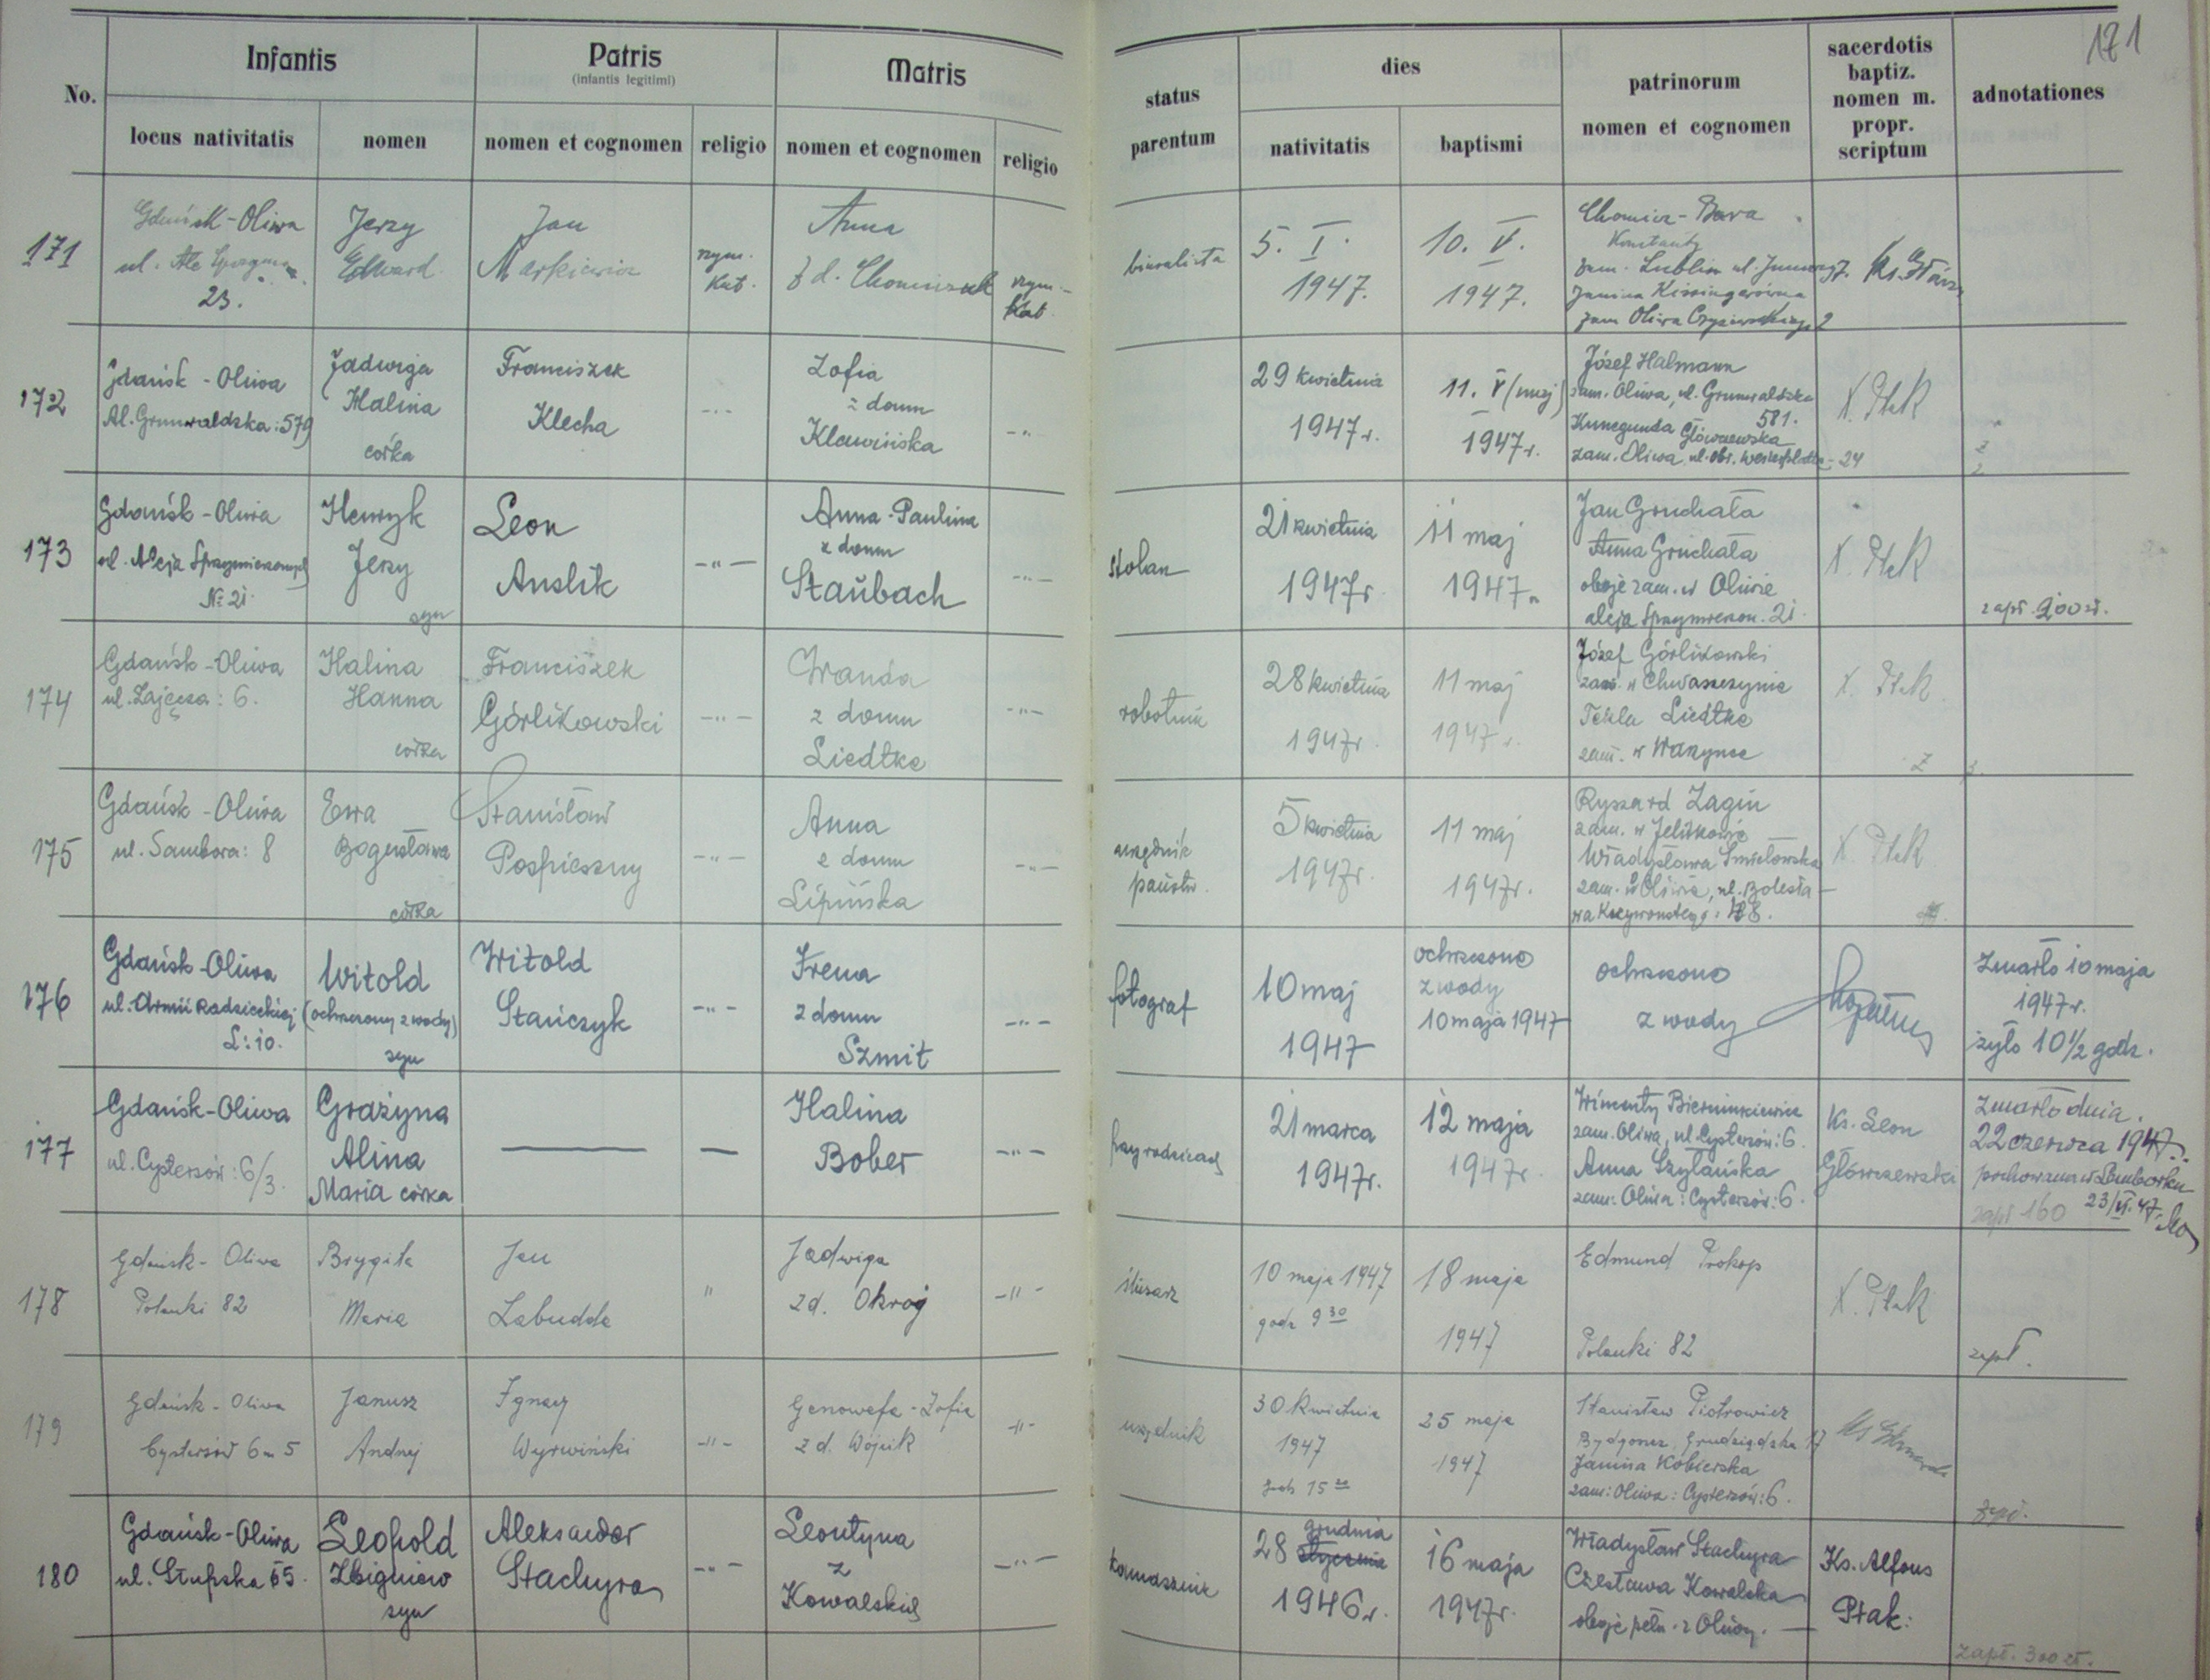 171
No.
Infantis
locus nativitatis
nomen
Patris
(infantis legitimi)
nomen et cognomen
religio
Matris
nomen et cognomen
religio
status
parentum
dies
nativitatis
baptismi
patrinorum
nomen et cognomen
sacerdotis
baptiz.
nomen m.
propr.
scriptum
adnotationes
171
Gdańsk-Oliwa
ul. Ale
23.
Jerzy
Edward
Jan
Markiewicz
rzym.
kat.
Anna
z d.
rzym.-
kat.
biuralista
5. I.
1947.
10. V.
1947.
Konstanty
zam. Lublin ul.
Janina
zam Oliwa
172
Gdańsk - Oliwa
Al. Grunwaldzka: 579
Jadwiga
Halina
córka
Franciszek
Klecha
-"-
Zofia
z domu
Klawińska
-"-
29 kwietnia
1947r.
11. V (maj)
1947r.
Józef Halmann
zam. Oliwa, ul. Grunwaldzka
581.
Kunegunda Główczewska
zam. Oliwa, ul. obr. Westerplatte - 24
X. Ptak
173
Gdańsk - Oliwa
ul. Aleja Sprzymierzonych
№ 21.
Henryk
Jerzy
syn
Leon
Anslik
-"-
Anna-Paulina
z domu
Staŭbach
-"-
stolarz
21 kwietnia
1947r
11 maj
1947r
Jan Gruchała
Anna Gruchała
oboje zam. w Oliwie
aleja Sprzymierzon. 21.
X. Ptak
zapł. 900 zł.
174
Gdańsk-Oliwa
ul. Zajęcza: 6.
Halina
Hanna
córka
Franciszek
Górlikowski
-"-
Wanda
z domu
Liedtke
-"-
robotnik
28 kwietnia
1947r.
11 maj
1947r.
Józef Górlikowski
zam. w Chwaszczynie
Tekla Liedtke
zam. w
X. Ptak
175
Gdańsk - Oliwa
ul. Sambora: 8
Ewa
Bogusława
córka
Stanisław
Pospieszny
-"-
Anna
z domu
Lipińska
-"-
urzędnik
państw.
5 kwietnia
1947r.
11 maj
1947r.
Ryszard Zagin
zam. w Jelitkowie
Władysława Śmiełowska
zam. w Oliwie, ul. Bolesła-
wa Krzywoustego: 18.
X. Ptak
176
Gdańsk-Oliwa
ul. Armii Radzieckiej
L: 10.
Witold
(ochrzczony z wody)
syn
Witold
Stańczyk
-"-
Irena
z domu
Szmit
-"-
fotograf
10 maj
1947
ochrzczono
z wody
10 maja 1947
ochrzczono
z wody
Zmarło 10 maja
1947r.
żyło 10 1/2 godz.
177
Gdańsk-Oliwa
ul. Cystersów: 6/3.
Grażyna
Alina
Maria córka
—
—
Halina
Bober
-"-
przy rodzicach
21 marca
1947r.
12 maja
1947r.
Wincenty Bieruńkiewicz
zam. Oliwa, ul. Cystersów: 6.
Anna Szylańska
zam: Oliwa: Cystersów: 6.
Ks. Leon
Główczewski
Zmarło dnia
22 czerwca 1947r.
pochowana w Lemborku
zapł 160 23/VI. 47.
178
Gdańsk - Oliwa
Polanki 82
Brygita
Maria
Jan
Labudda
"
Jadwiga
z d. Okrój
-"-
ślusarz
10 maja 1947
godz 9 30
18 maja
1947
Edmund Prokop
Polanki 82
X. Ptak
zapł.
179
Gdańsk - Oliwa
Cystersów 6 m 5
Janusz
Andrzej
Ignacy
Wyrwiński
-"-
Genowefa - Zofia
z d. Wójcik
-"-
urzędnik
30 kwietnia
1947
godz 15
25 maja
1947
Stanisław Piotrowicz
Bydgoszcz, Grudziądzka 17
Janina Kobierska
zam: Oliwa: Cystersów: 6.
zapł.
180
Gdańsk-Oliwa
ul. Słupska 65.
Leopold
Zbigniew
syn
Aleksander
Stachyra
-"-
Leontyna
z
Kowalskich
-"-
kamasznik
grudnia
28 stycznia
1946r.
16 maja
1947r.
Władysław Stachyra
Czesława Kowalska
oboje pełn. z Oliwy.
Ks. Alfons
Ptak.
zapł. 300 zł.